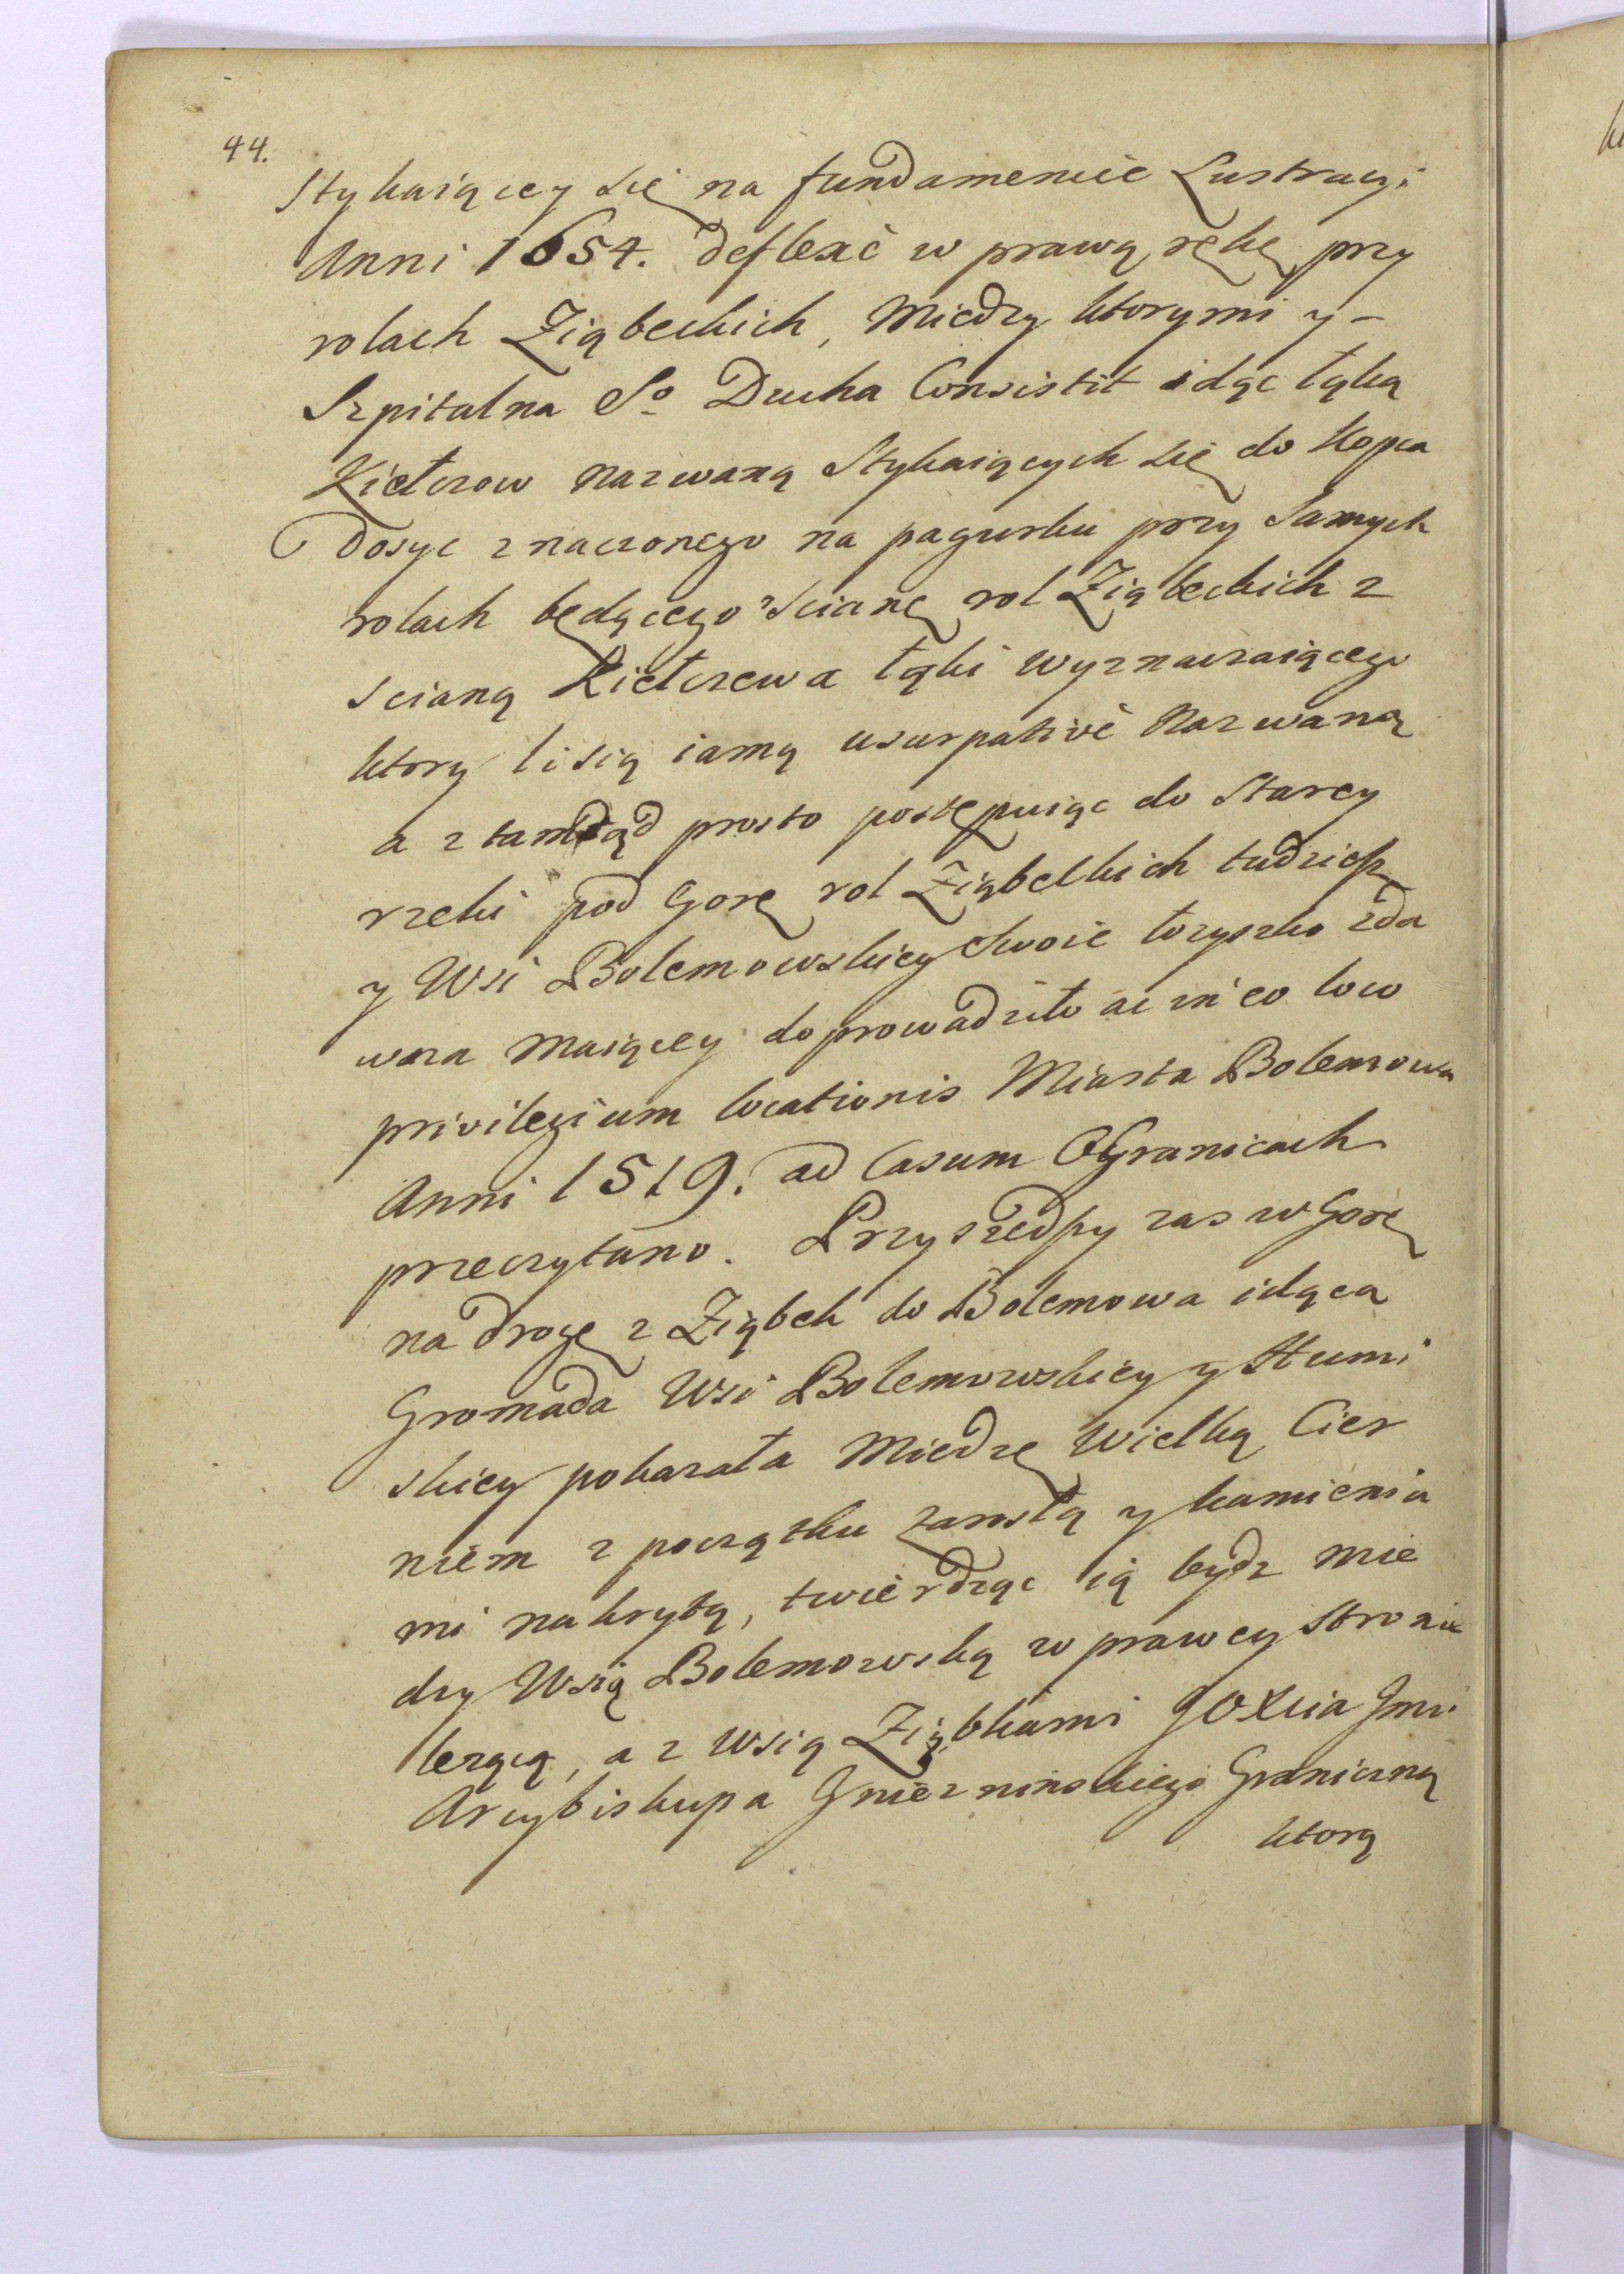 44.
Stykaiącey się na fundamencie Lustracyi
Anni 1654. deflexè w prawą rękę przy
rolach Ziąbeckich, Miedzy ktorymi y –
Szpitalna So Ducha Consistit idąc łąką
Kiełczow nazwaną Stykaiących się do Kopca
dosyc znaczonego na pagurku przy samych
rolach będącego scianę rol Ziąbeckich z
scianą Kiełczewa łąki wyznaczaiącego
ktory lisią iamą usurpativè Nazwaną
a z tamtąd prosto postępuiąc do Starey
rzeki pod Gorę rol Ziąbeckich tudzież
y Wsi Bolemowskiey Swoie łozysko zda
wna Maiącey doprowadziło ac in eo loco
privilegium locationis Miasta Bolemowa
Anni 1519. ad Casum O Granicach
przeczytano. Przyszedszy zas w Gorę
na drogę z Ziąbek do Bolemowa idącą
Gromada Wsi Bolemowskiey y Humi
skiey pokazała Miedzę Wielką Cier
niem z początku zarosłą y kamienia
mi nakrytą, twierdząc ią bydz mie
dzy Wsią Bolemowską w prawey stronie
lezącą, a z wsią Ziąbkami JOXcia Jmci
Arcybiskupa Gniezninskiego Graniczną
ktorą